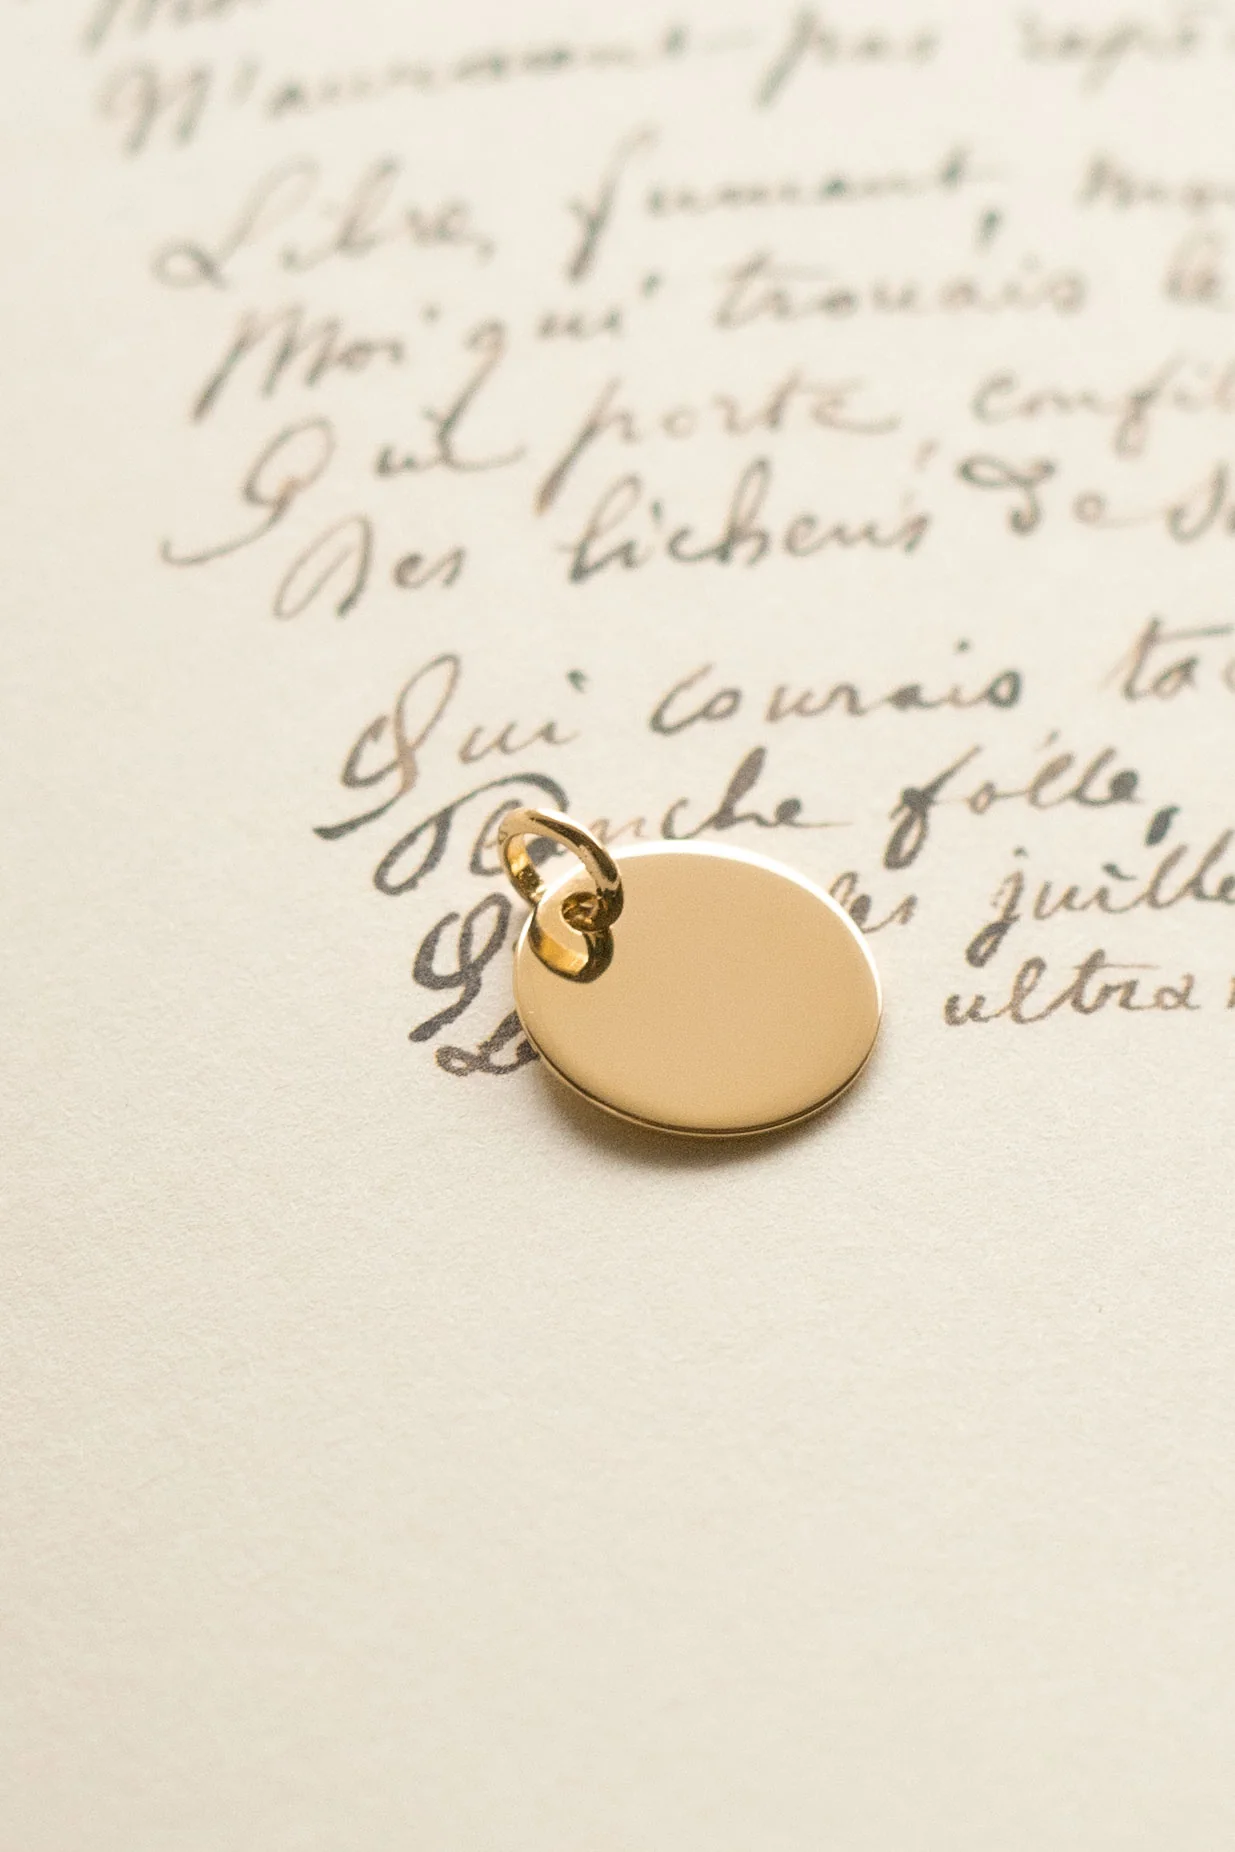 N'auraient pas repê
Libre, fumant,
Moi qui trouais le
Qui porte, confit
Des lichens de
Qui courais, ta
Planche folle,
Q les juille
ultra